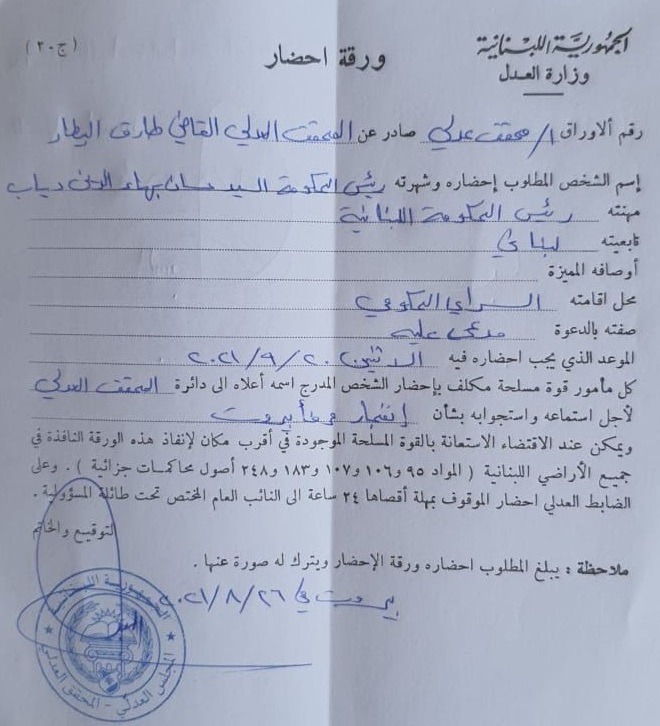 الجمهورية اللبنانية
وزارة العدل
ورقة احضار
(ج٢٠)
رقم ألاوراق ١/ محقق عدلي صادر عن المحقق العدلي القاضي طارق البيطار
إسم الشخص المطلوب إحضاره وشهرته رئيس الحكومة السيد حسان بهاء الدين دياب
مهنته رئيس الحكومة اللبنانية
تابعيته لبناني
أوصافه المميزة
محل اقامته السراي الحكومي
صفته بالدعوة مدعى عليه
الموعد الذي يجب احضاره فيه الاثنين ٢٠/٩/٢٠٢١
كل مأمور قوة مسلحة مكلف بإحضار الشخص المدرج اسمه أعلاه الى دائرة المحقق العدلي
لأجل استماعه واستجوابه بشأن إنفجار مرفأ بيروت
ويمكن عند الاقتضاء الاستعانة بالقوة المسلحة الموجودة في أقرب مكان لإنفاذ هذه الورقة النافذة في
جميع الأراضي اللبنانية ( المواد ٩٥ و١٠٦ و١٠٧ و١٨٣ و٢٤٨ أصول محاكمات جزائية ) . وعلى
الضابط العدلي احضار الموقوف بمهلة أقصاها ٢٤ ساعة الى النائب العام المختص تحت طائلة المسؤولية .
التوقيع والخاتم
ملاحظة : يبلغ المطلوب احضاره ورقة الإحضار ويترك له صورة عنها .
بيروت في ٢٦/٨/٢٠٢١
الجمهورية اللبنانية
العدل
المجلس العدلي - المحقق العدلي